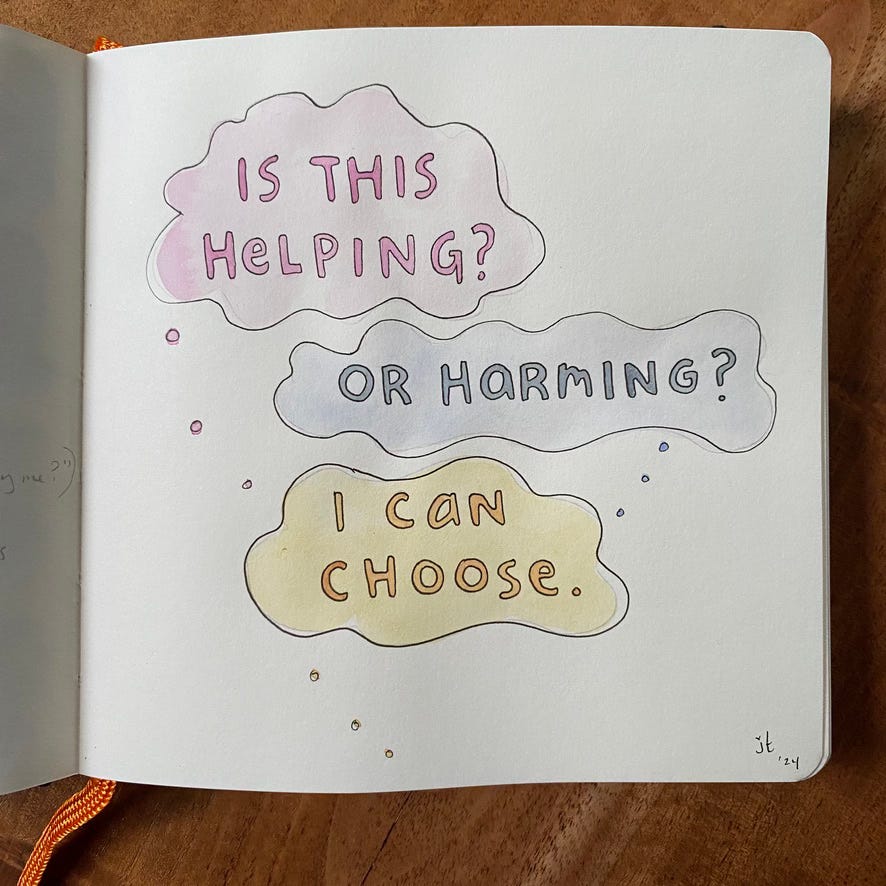 IS THIS
HeLPING?
OR HaRmING?
I CaN
CHOOSe.
jt
'24
me?")
s